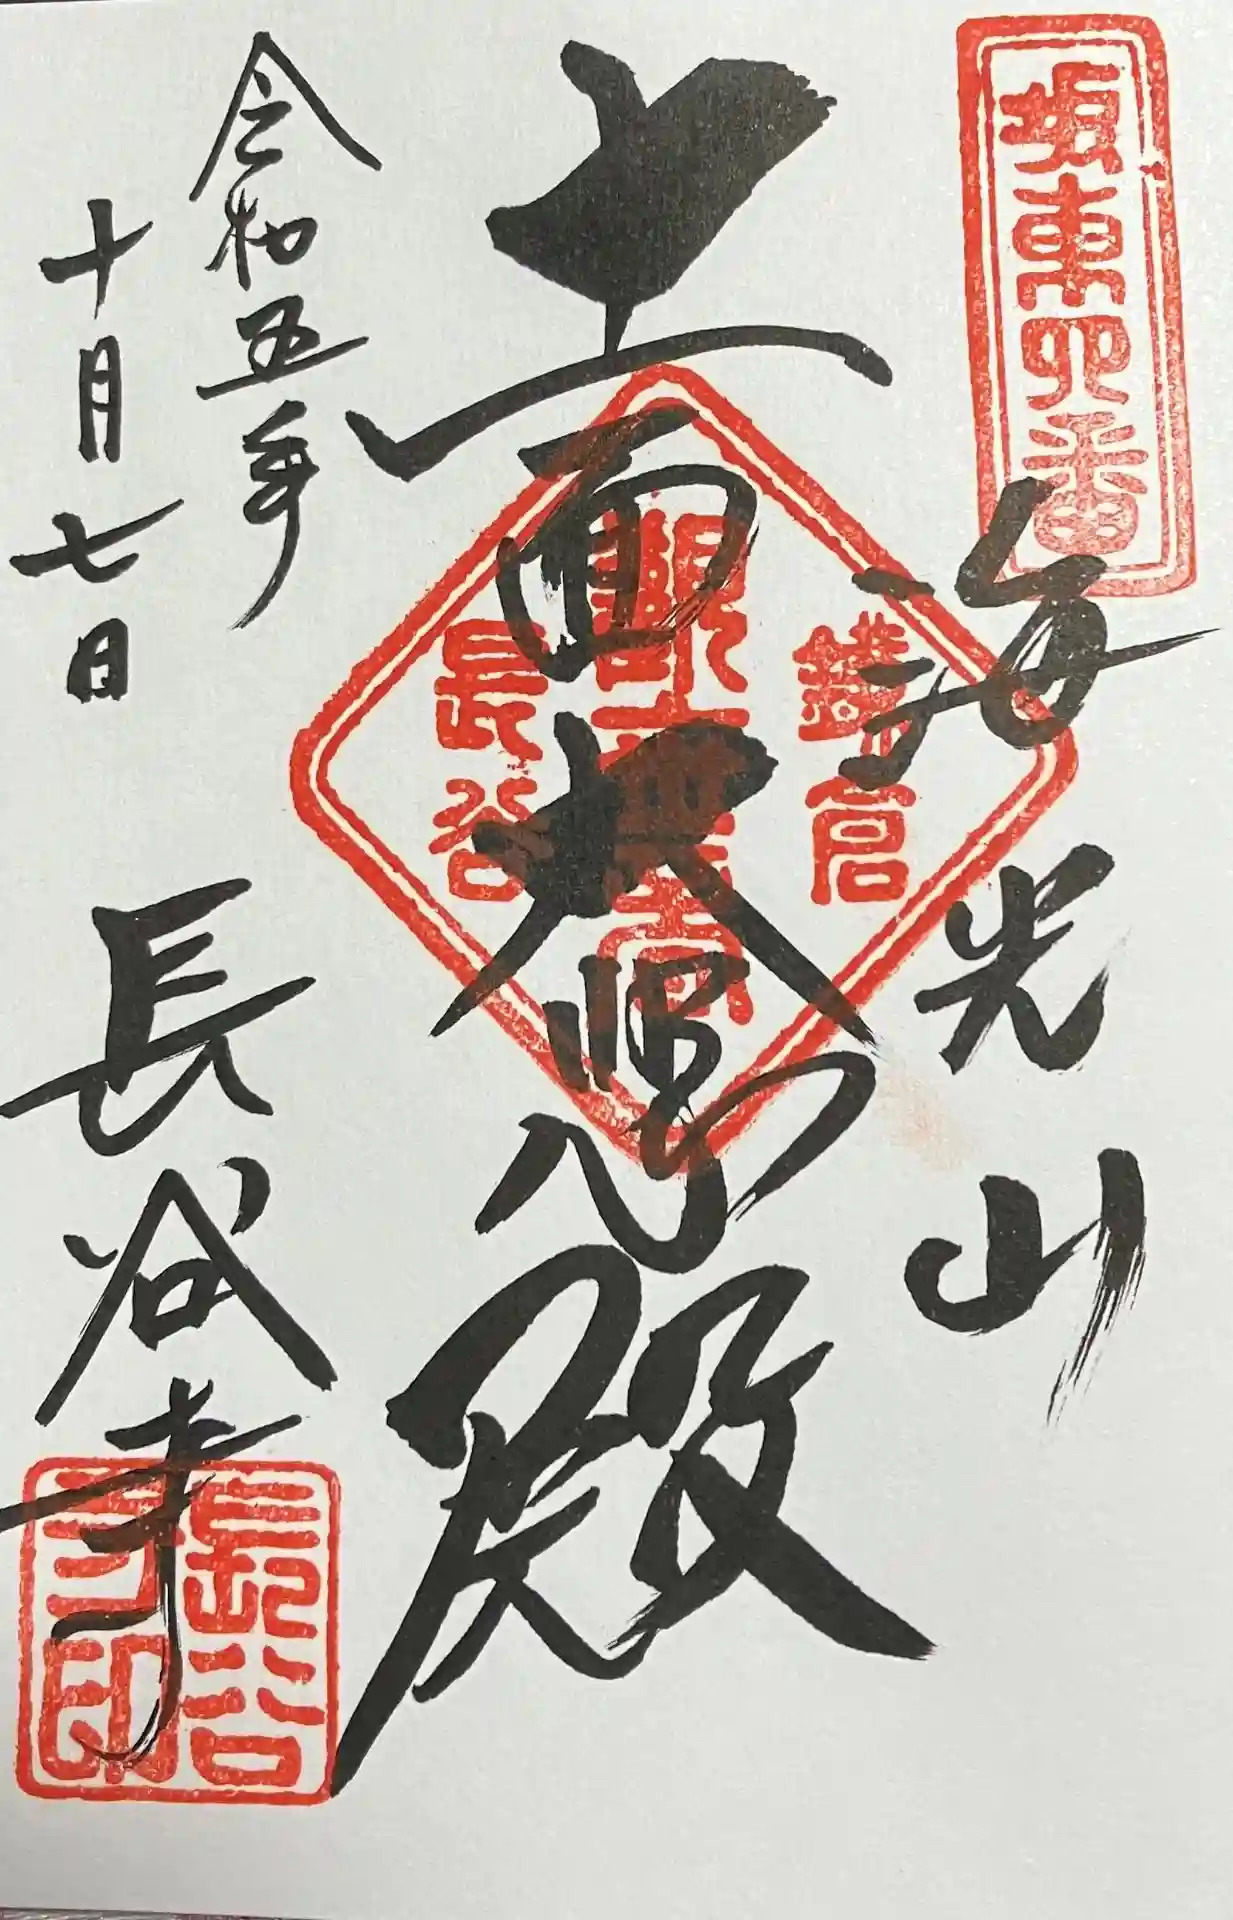 坂東四番
海光山
鎌倉
十一面大悲殿
長谷
令和五年
十月七日
長谷寺
長谷
寺印